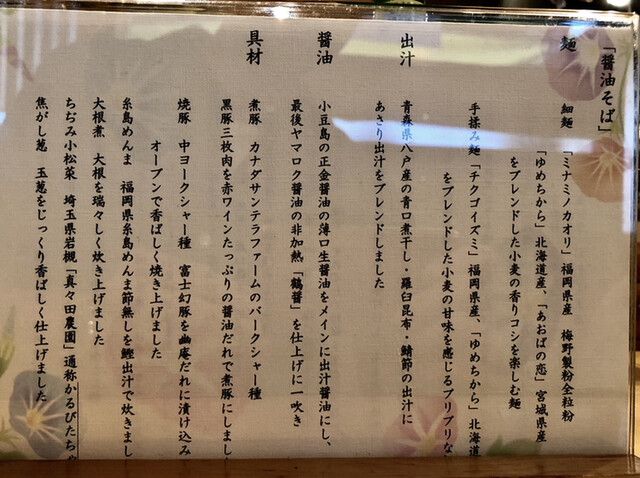 「醤油そば」
麺
細麺 「ミナミノカオリ」福岡県産 梅野製粉全粒粉
「ゆめちから」北海道産、「あおばの恋」宮城県産
をブレンドした小麦の香りコシを楽しむ麺
手揉み麺「チクゴイズミ」福岡県産、「ゆめちから」北海道
をブレンドした小麦の甘味を感じるプリプリな
出汁
青森県八戸産の青口煮干し・羅臼昆布・鯖節の出汁に
あさり出汁をブレンドしました
醤油
小豆島の正金醤油の薄口生醤油をメインに出汁醤油にし、
最後ヤマロク醤油の非加熱「鶴醤」を仕上げに一吹き
具材
煮豚 カナダサンテラファームのバークシャー種
黒豚三枚肉を赤ワインたっぷりの醤油だれで煮豚にしまし
焼豚 中ヨークシャー種 富士幻豚を幽庵だれに漬け込み
オーブンで香ばしく焼き上げました
糸島めんま 福岡県糸島めんま節無しを鰹出汁で炊きまし
大根煮 大根を瑞々しく炊き上げました
ちぢみ小松菜 埼玉県岩槻「真々田農園」通称かるびたち
焦がし葱 玉葱をじっくり香ばしく仕上げました